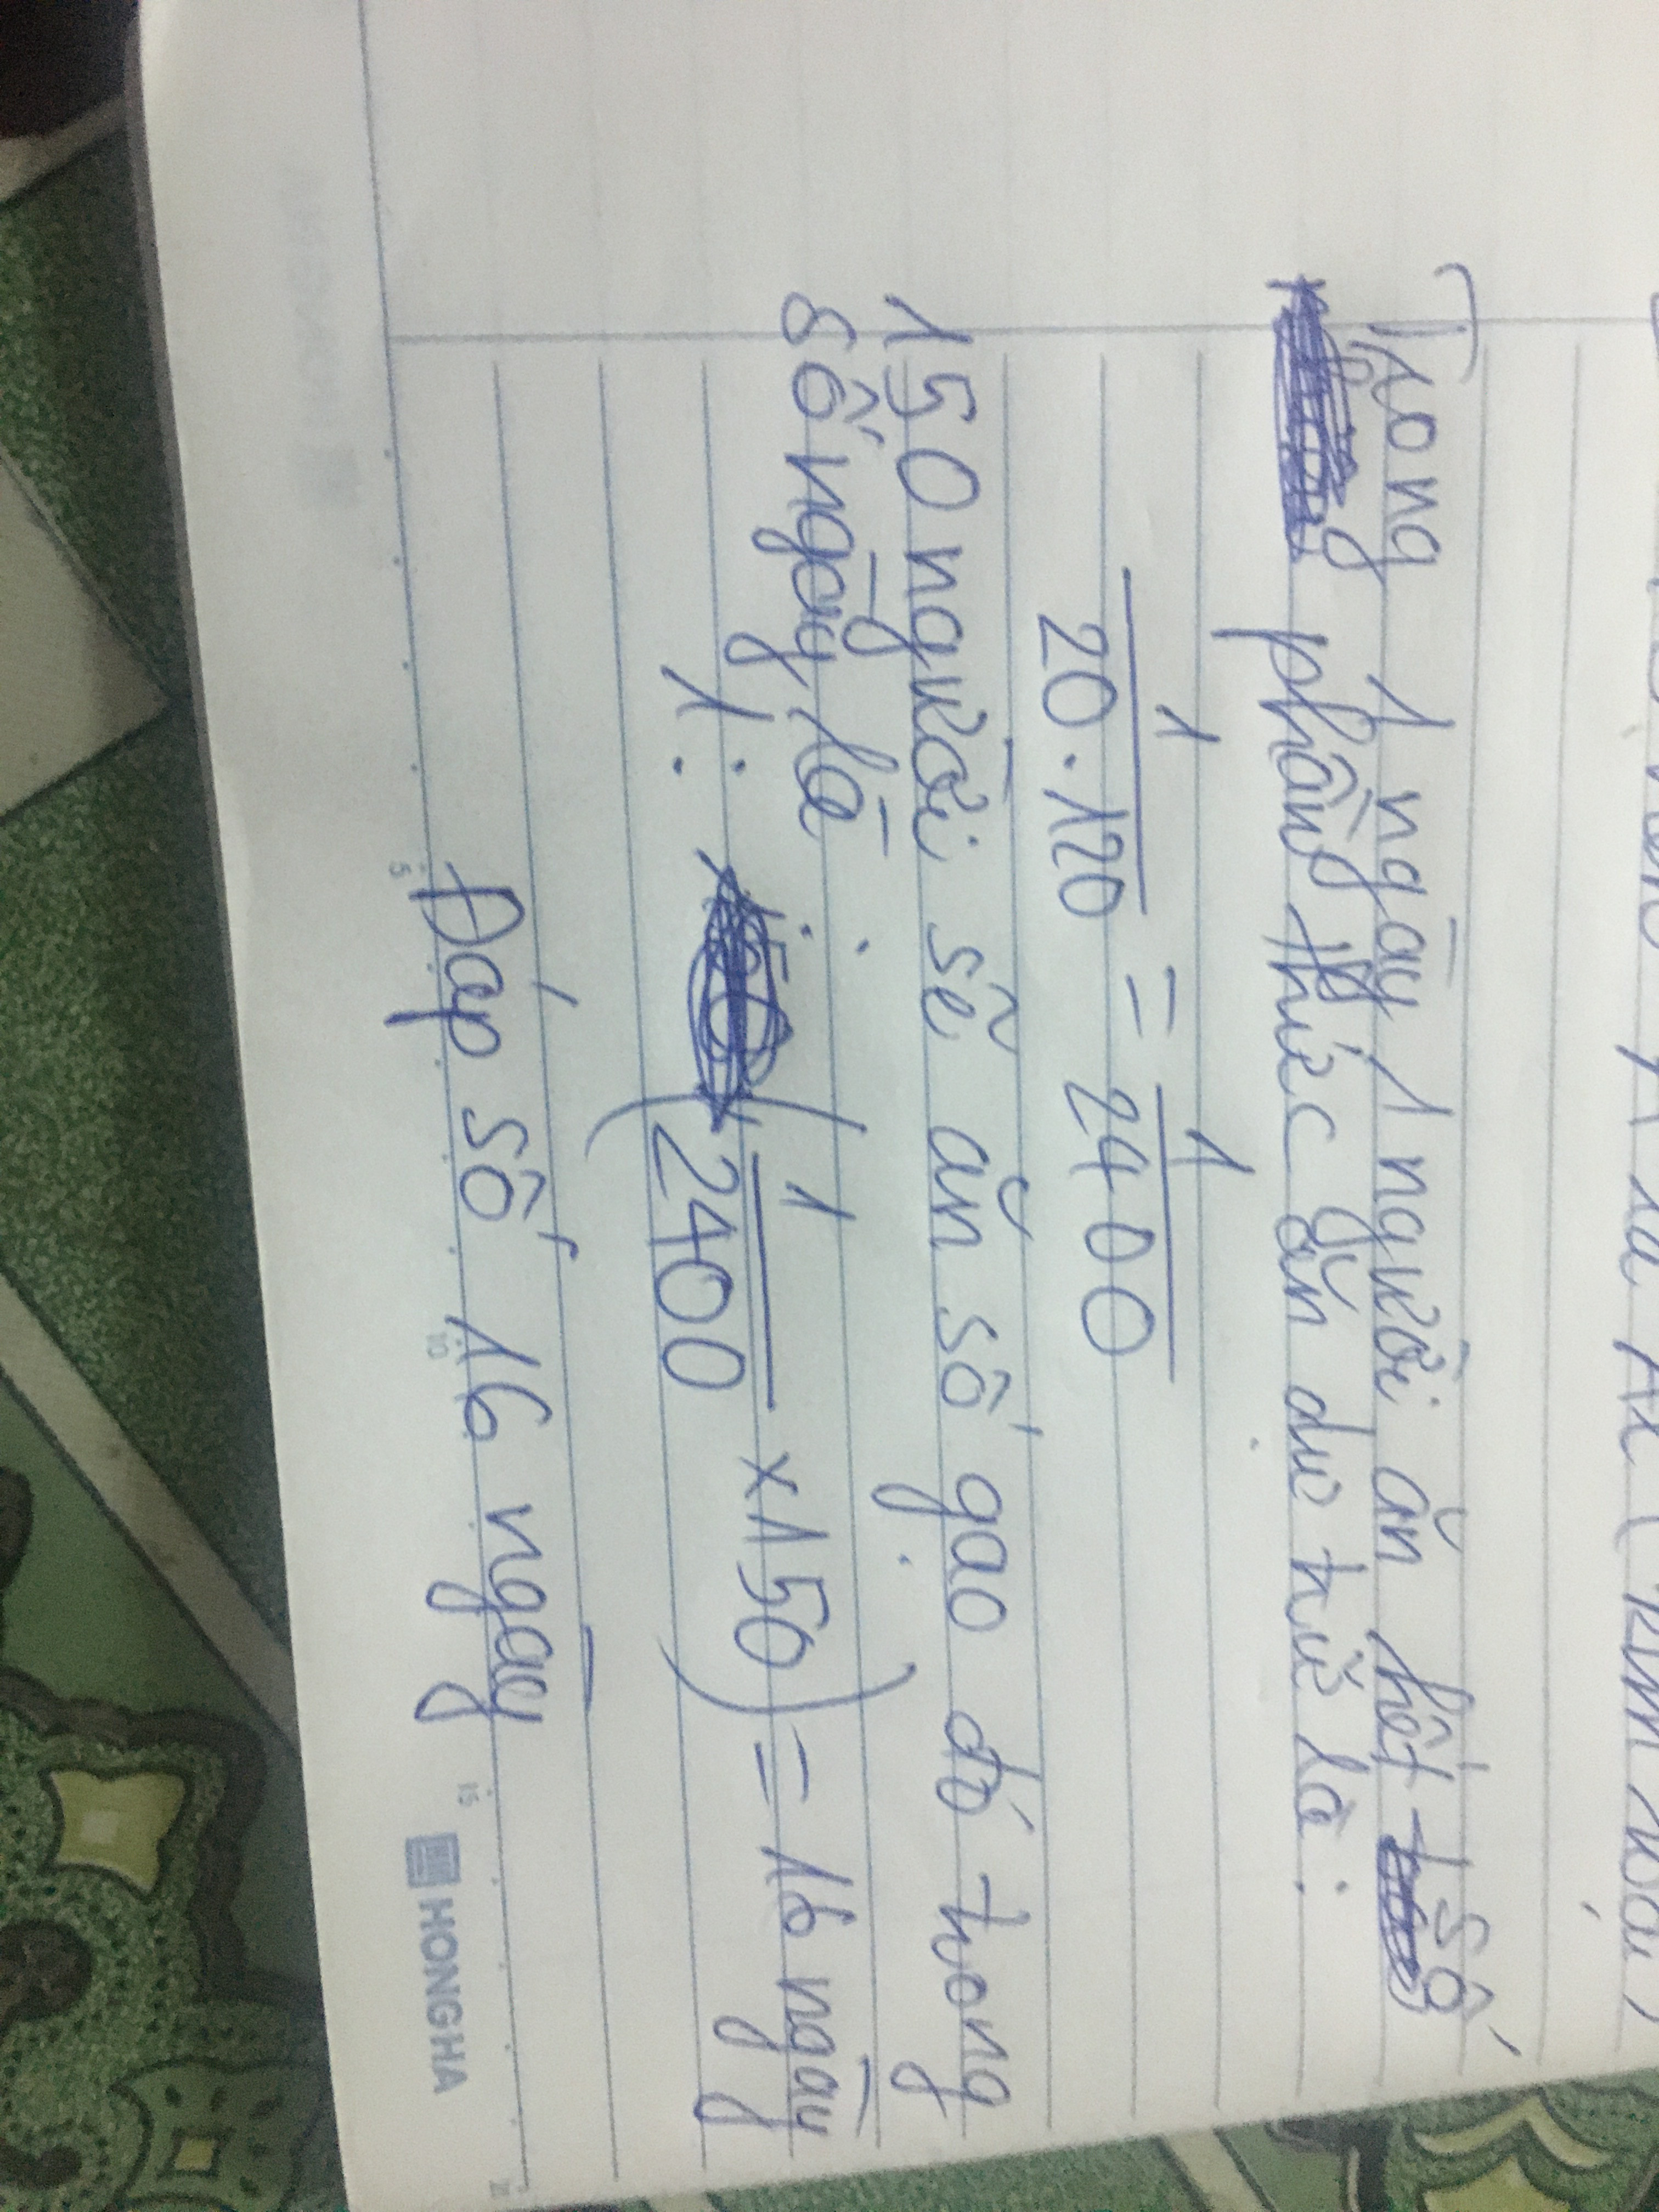 Trong 1 ngày 1 người ăn hết số
phần thức ăn dự trữ là:
1 / 20.120 = 1 / 2400
150 người sẽ ăn số gạo đó trong
số ngày là:
1: (1 / 2400 x 150) = 16 ngày
Đáp số 16 ngày
5 10 15
HONGHA